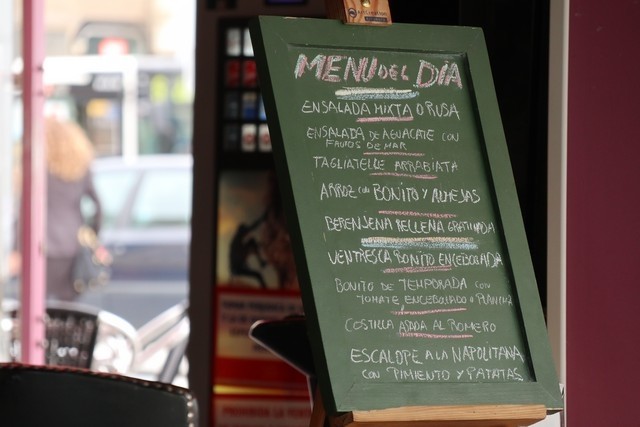 MENU DEL DÍA
ENSALADA MIXTA O RUSA
ENSALADA DE AGUACATE CON
FRUTOS DE MAR
TAGLIATELLE ARRABIATA
ARROZ CON BONITO Y ALMEJAS
BERENJENA RELLENA GRATINADA
VENTRESCA BONITO ENCEBOLLADA
BONITO DE TEMPORADA CON
TOMATE, ENCEBOLLADO O PLANCHA
COSTILLA ASADA AL ROMERO
ESCALOPE A LA NAPOLITANA
CON PIMIENTO Y PATATAS